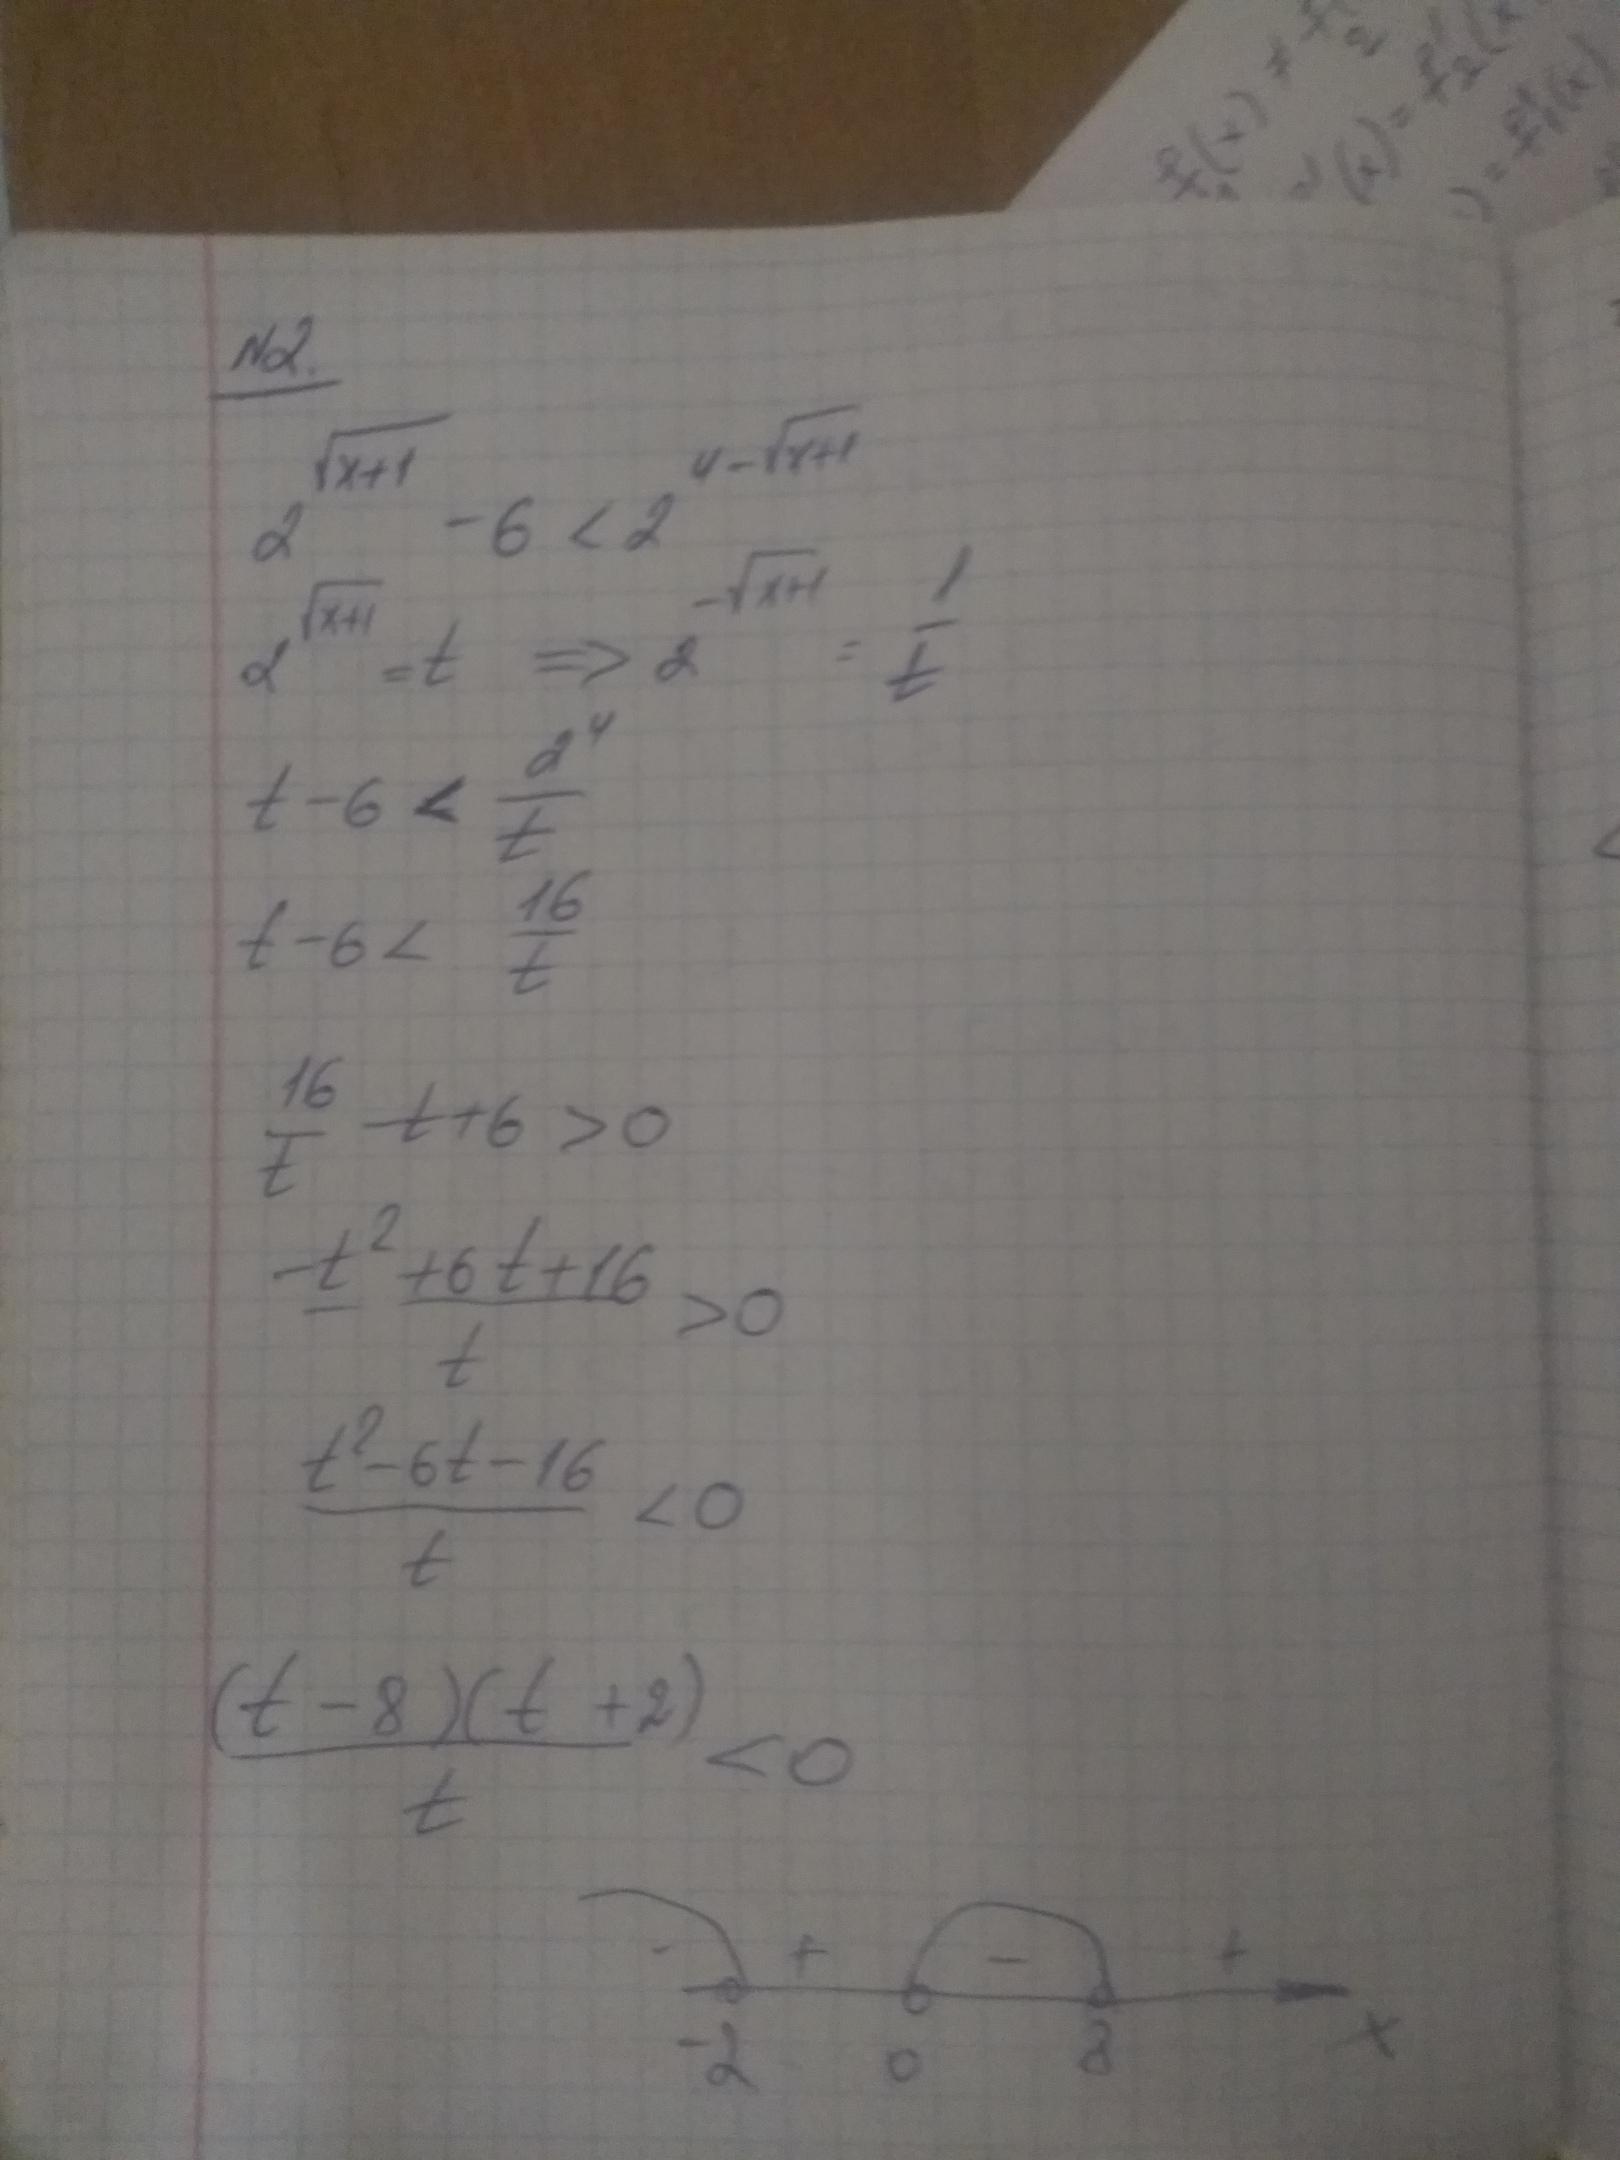 №2.
2^{√(x+1)} - 6 < 2^{4-√(x+1)}
2^{√(x+1)} = t => 2^{-√(x+1)} = 1/t
t - 6 < 2^4/t
t - 6 < 16/t
16/t - t + 6 > 0
(-t^2 + 6t + 16)/t > 0
(t^2 - 6t - 16)/t < 0
((t - 8)(t + 2))/t < 0
- + - +
-2 0 8 x